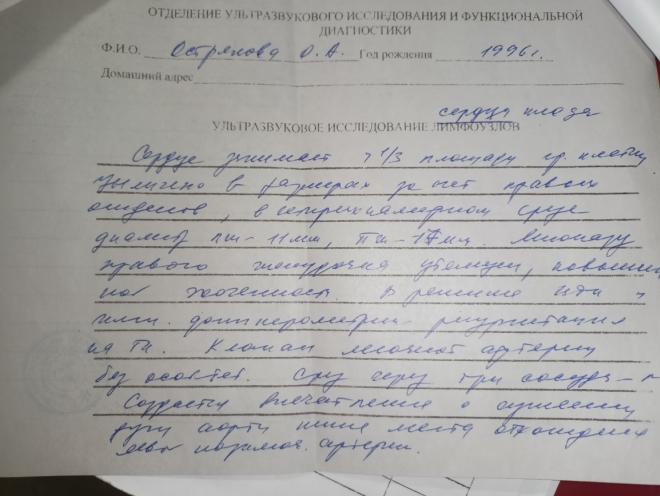 ОТДЕЛЕНИЕ УЛЬТРАЗВУКОВОГО ИССЛЕДОВАНИЯ И ФУНКЦИОНАЛЬНОЙ
ДИАГНОСТИКИ
Ф.И.О. Острякова О. А. Год рождения 1996г.
Домашний адрес
сердца плода
УЛЬТРАЗВУКОВОЕ ИССЛЕДОВАНИЕ ЛИМФОУЗЛОВ
Сердце занимает 1/3 площади гр. клетки
увеличено в размерах за счет правых
отделов, в четырехкамерном срезе
диаметр - 11мм, - 17мм. Миокард
правого желудочка утолщен, повышен
ной эхогенности. В режиме ЦДК и
допплерометрии регургитация
на Тк. Клапан легочной артерии
без особ. Срез через три сосуда -
Создается впечатление о сужении
дуги аорты ниже места отхождения
артерии.